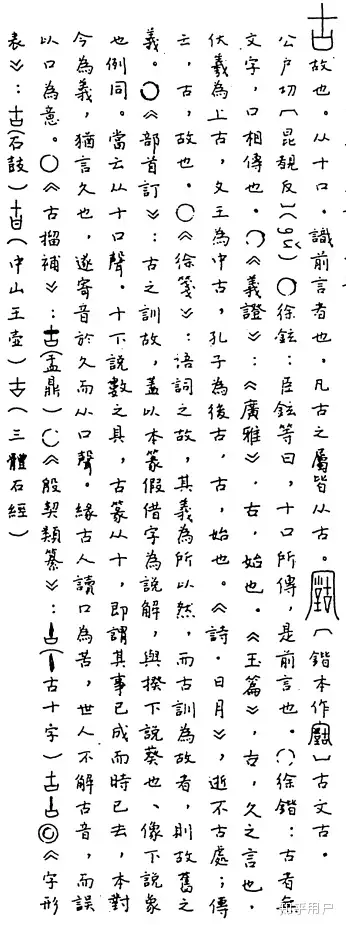 古故也。从十口。識前言者也。凡古之屬皆从古。〔鍇本作〕古文古。
公户切〔昆覩反〕(gǔ)○徐鉉：臣鉉等曰，十口所傳，是前言也。○徐鍇：古者無
文字，口相傳也。○《義證》：《廣雅》，古，始也。《玉篇》，古，久之言也。
伏羲為上古，文王為中古，孔子為後古，古，始也。《詩．日月》，逝不古處；傳
云，古，故也。○《徐箋》：語詞之故，其義為所以然，而古訓為故者，則故舊之
義。○《部首訂》：古之訓故，蓋以本篆假借字為說解，與揆下說葵也、像下說象
也例同。當云从十口聲。十下說數之具，古篆从十，即謂其事已成而時已去，本對
今為義，猶言久也，遂寄音於久而从口聲。緣古人讀口為苦，世人不解古音，而誤
以口為意。○《古籀補》：古(盂鼎)○《殷契類纂》：古(丨古十字)古古◎《字形
表》：古(石鼓)(中山王壺)古(三體石經)
知乎用户